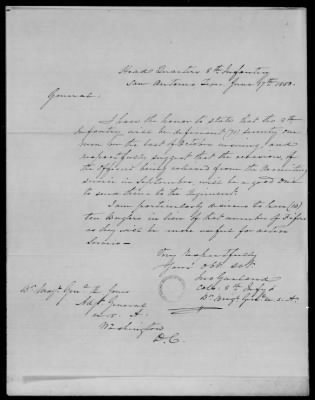 Head Quarters 8th Infantry
San Antonio Texas June 17th 1850.
General.
I have the honor to state that the 8th
Infantry will be deficient (71) seventy one
men by the last of October ensuing, and
respectfully suggest that the
of the Officers being relieved from the Recruiting
service in September, will be a good one
to send them to the Regiment.
I am particularly anxious to have (10)
ten Buglers in lieu of that number of Fifers
as they will be more useful for active
Service -
Very Respectfully
Your Obt. Sevt.
Jno Garland
Col. 8th Infy &
Bt. Brigr Genl U. S. A.
Bt. Majr Genl R Jones
Adjt. General
U. S. A.
Washington
D. C.